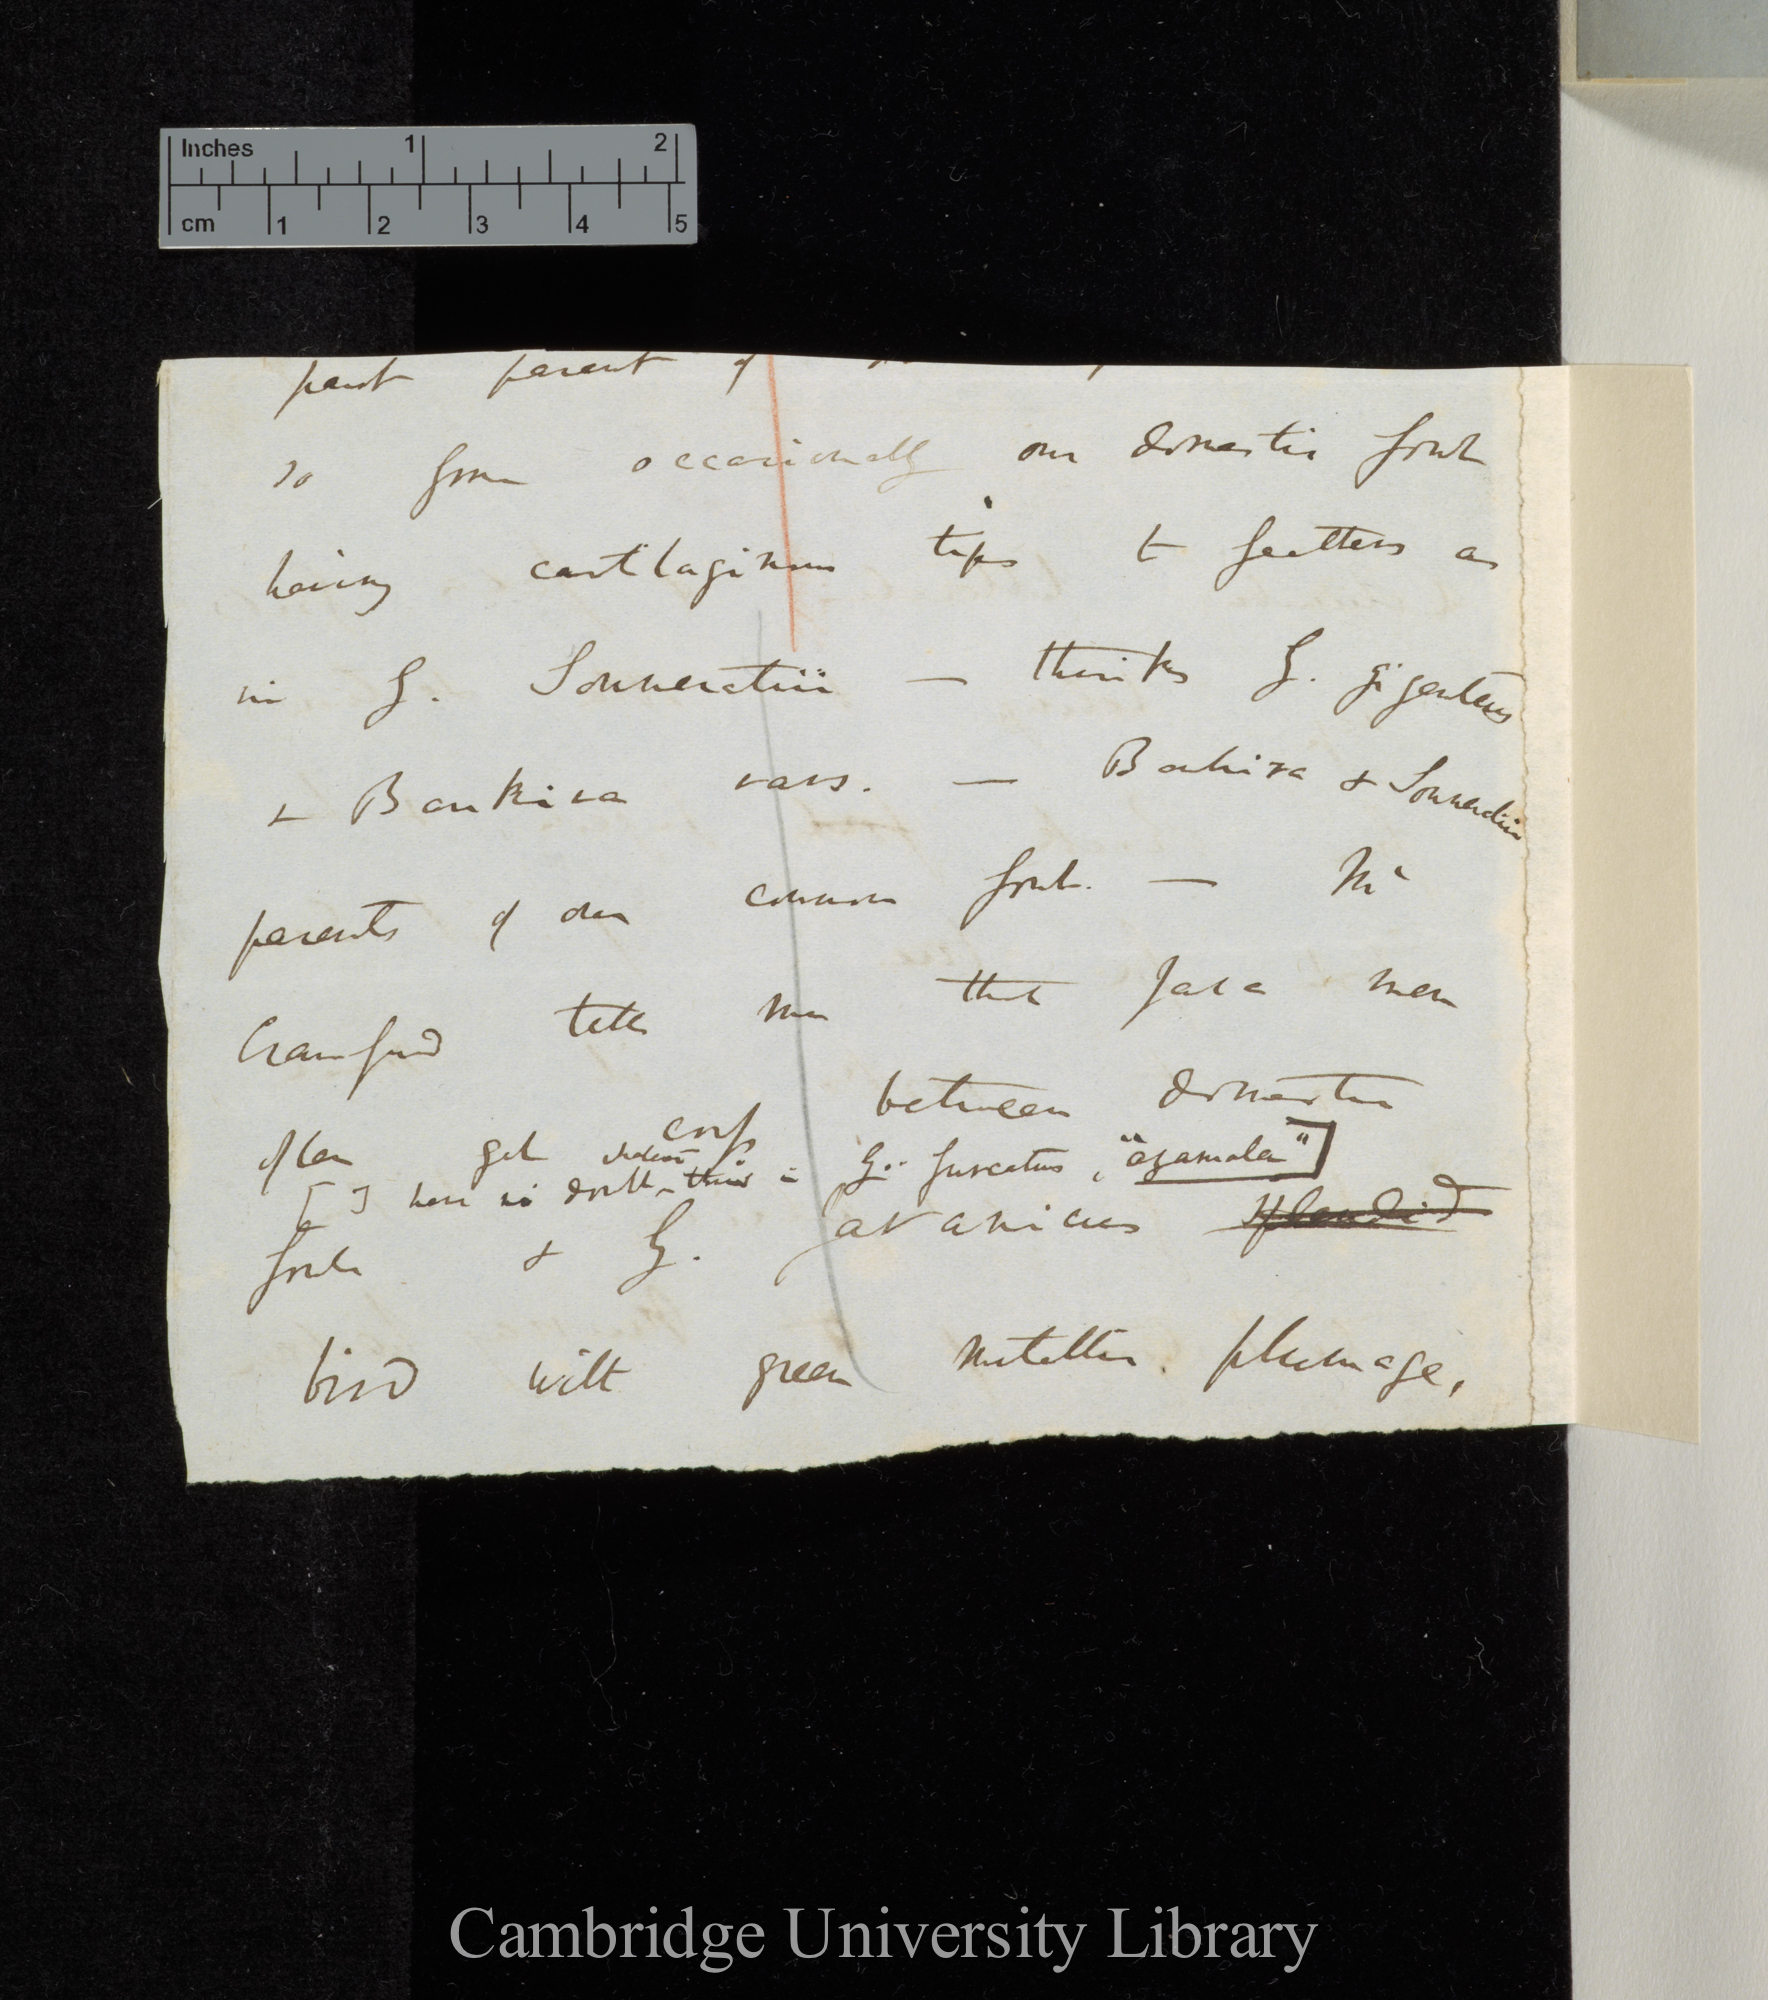 Inches 1 2
cm 1 2 3 4 5
part parent of
so from occasionally our domestic fowl
having cartilaginous tips to feathers as
in G. Sonneratii — thinks G. giganteus
& Bankiva vars. — Bankiva & Sonneratii
parents of our common fowl. — Mr
Crawfurd tells me that Java men
often get cross between domestic
[ ] have no doubt this is G. furcatus, "agamala"]
fowl & G. Javanicus splendid
bird with green metallic plumage,
Cambridge University Library